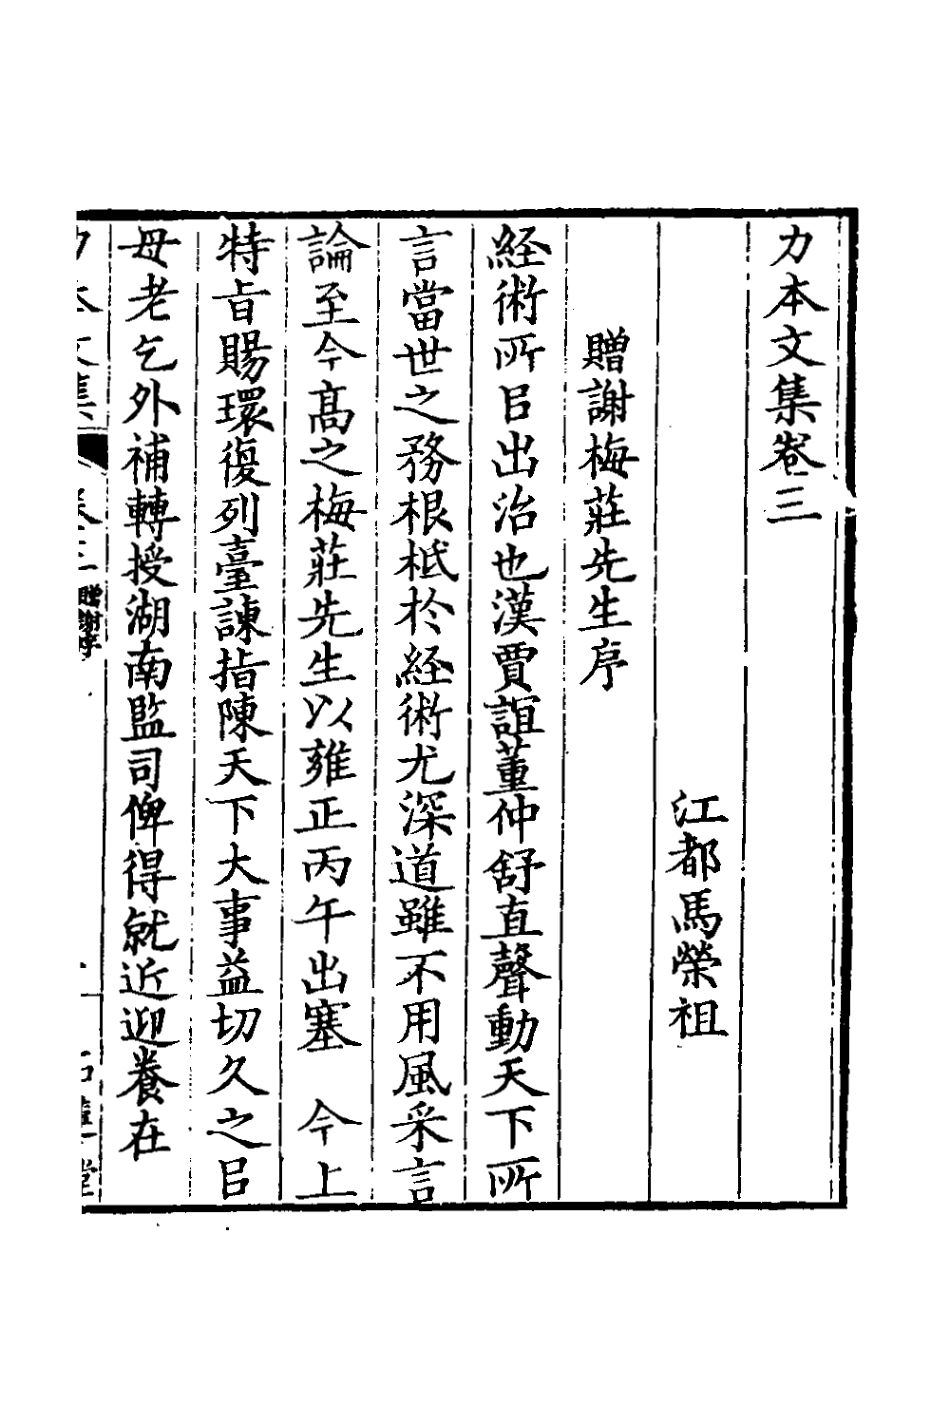 力本文集卷三
江都馬榮祖
贈謝梅莊先生序
經術所㠯出治也漢賈誼董仲舒直聲動天下所
言當世之務根柢於經術尤深道雖不用風采言
論至今髙之梅莊先生以雍正丙午出塞　今上
特旨賜環復列臺諫指陳天下大事益切久之㠯
母老乞外補轉授湖南監司俾得就近迎養在
力本文集 卷三 贈謝序 一